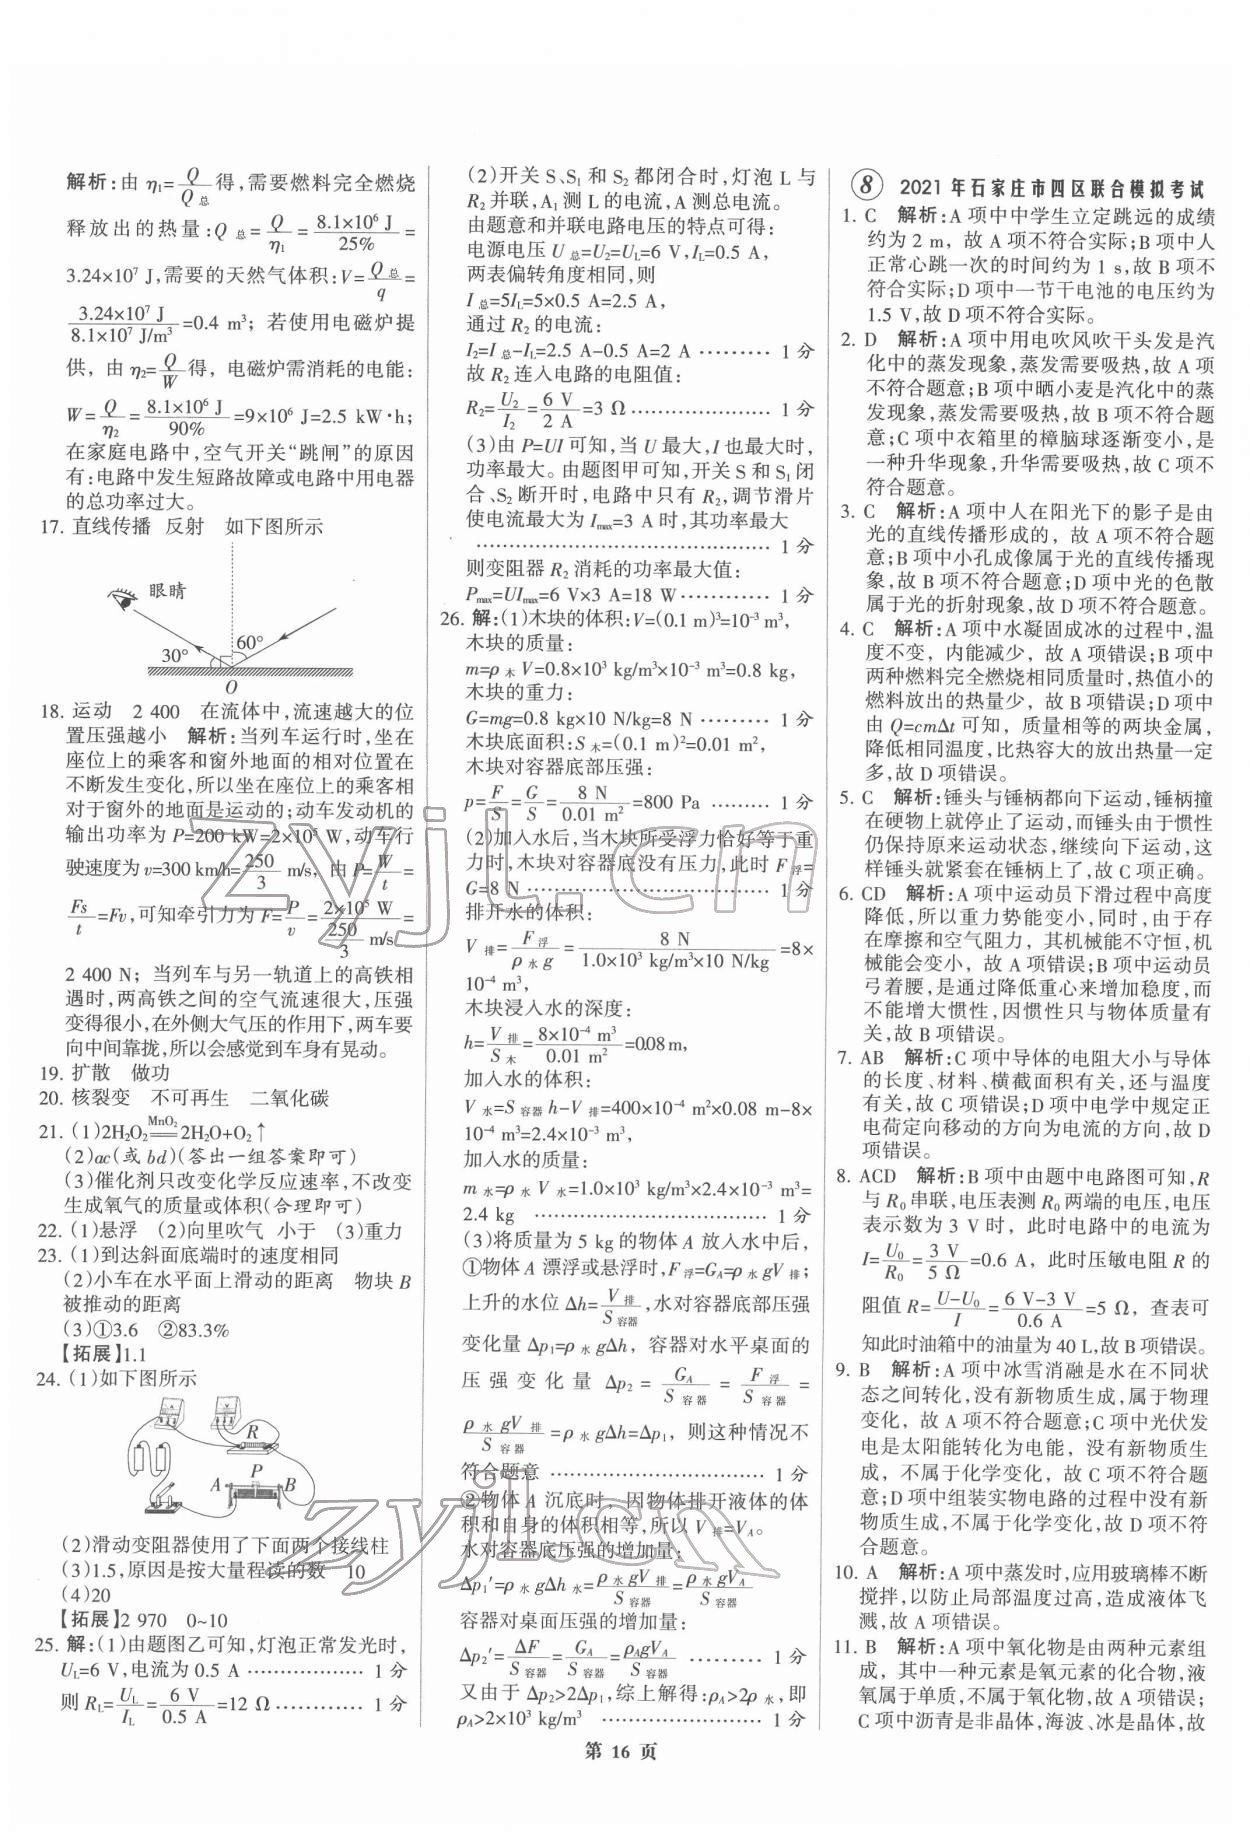 解析:由 η₁=Q/Q总 得,需要燃料完全燃烧
释放出的热量:Q总=Q/η₁=8.1×10⁶ J/25%=
3.24×10⁷ J,需要的天然气体积:V=Q总/q=
3.24×10⁷ J/8.1×10⁷ J/m³=0.4 m³;若使用电磁炉提
供,由 η₂=Q/W得,电磁炉需消耗的电能:
W=Q/η₂=8.1×10⁶ J/90%=9×10⁶ J=2.5 kW·h;
在家庭电路中,空气开关“跳闸”的原因
有:电路中发生短路故障或电路中用电器
的总功率过大。
17. 直线传播 反射 如下图所示
眼睛
60°
30°
O
18. 运动 2 400 在流体中,流速越大的位
置压强越小 解析:当列车运行时,坐在
座位上的乘客和窗外地面的相对位置在
不断发生变化,所以坐在座位上的乘客相
对于窗外的地面是运动的;动车发动机的
输出功率为 P=200 kW=2×10⁵ W,动车行
驶速度为 v=300 km/h=250/3 m/s,由 P=W/t=
Fs/t=Fv,可知牵引力为 F=P/v=2×10⁵ W/(250/3 m/s)=
2 400 N;当列车与另一轨道上的高铁相
遇时,两高铁之间的空气流速很大,压强
变得很小,在外侧大气压的作用下,两车要
向中间靠拢,所以会感觉到车身有晃动。
19. 扩散 做功
20. 核裂变 不可再生 二氧化碳
21. (1)2H₂O₂ MnO₂══ 2H₂O+O₂↑
(2)ac(或 bd)(答出一组答案即可)
(3)催化剂只改变化学反应速率,不改变
生成氧气的质量或体积(合理即可)
22. (1)悬浮 (2)向里吹气 小于 (3)重力
23. (1)到达斜面底端时的速度相同
(2)小车在水平面上滑动的距离 物块 B
被推动的距离
(3)①3.6 ②83.3%
【拓展】1.1
24. (1)如下图所示
R
P
A B
(2)滑动变阻器使用了下面两个接线柱
(3)1.5,原因是按大量程读的数 10
(4)20
【拓展】2 970 0~10
25. 解:(1)由题图乙可知,灯泡正常发光时,
U_L=6 V,电流为 0.5 A ……………… 1 分
则 R_L=U_L/I_L=6 V/0.5 A=12 Ω ………… 1 分
(2)开关 S、S₁ 和 S₂ 都闭合时,灯泡 L 与
R₂ 并联,A₁ 测 L 的电流,A 测总电流。
由题意和并联电路电压的特点可得:
电源电压 U总=U₂=U_L=6 V,I_L=0.5 A,
两表偏转角度相同,则
I总=5I_L=5×0.5 A=2.5 A,
通过 R₂ 的电流:
I₂=I总-I_L=2.5 A-0.5 A=2 A ……… 1 分
故 R₂ 连入电路的电阻值:
R₂=U₂/I₂=6 V/2 A=3 Ω ………………… 1 分
(3)由 P=UI 可知,当 U 最大,I 也最大时,
功率最大。由题图甲可知,开关 S 和 S₁ 闭
合、S₂ 断开时,电路中只有 R₂,调节滑片
使电流最大为 I_max=3 A 时,其功率最大
…………………………………… 1 分
则变阻器 R₂ 消耗的功率最大值:
P_max=UI_max=6 V×3 A=18 W ………… 1 分
26. 解:(1)木块的体积:V=(0.1 m)³=10⁻³ m³,
木块的质量:
m=ρ木V=0.8×10³ kg/m³×10⁻³ m³=0.8 kg,
木块的重力:
G=mg=0.8 kg×10 N/kg=8 N ……… 1 分
木块底面积:S木=(0.1 m)²=0.01 m²,
木块对容器底部压强:
p=F/S=G/S=8 N/0.01 m²=800 Pa ……… 1 分
(2)加入水后,当木块所受浮力恰好等于重
力时,木块对容器底没有压力,此时 F浮=
G=8 N ……………………………… 1 分
排开水的体积:
V排=F浮/ρ水g=8 N/1.0×10³ kg/m³×10 N/kg=8×
10⁻⁴ m³,
木块浸入水的深度:
h=V排/S木=8×10⁻⁴ m³/0.01 m²=0.08 m,
加入水的体积:
V水=S容器h-V排=400×10⁻⁴ m²×0.08 m-8×
10⁻⁴ m³=2.4×10⁻³ m³,
加入水的质量:
m水=ρ水V水=1.0×10³ kg/m³×2.4×10⁻³ m³=
2.4 kg ……………………………… 1 分
(3)将质量为 5 kg 的物体 A 放入水中后,
①物体 A 漂浮或悬浮时,F浮=G_A=ρ水gV排;
上升的水位 Δh=V排/S容器,水对容器底部压强
变化量 Δp₁=ρ水gΔh,容器对水平桌面的
压强变化量 Δp₂=G_A/S容器=F浮/S容器=
ρ水gV排/S容器=ρ水gΔh=Δp₁,则这种情况不
符合题意 …………………………… 1 分
②物体 A 沉底时,因物体排开液体的体
积和自身的体积相等,所以 V排=V_A。
水对容器底压强的增加量:
Δp₁′=ρ水gΔh水=ρ水gV排/S容器=ρ水gV_A/S容器
容器对桌面压强的增加量:
Δp₂′=ΔF/S容器=G_A/S容器=ρ_AgV_A/S容器 ……… 1 分
又由于 Δp₂>2Δp₁,综上解得:ρ_A>2ρ水,即
ρ_A>2×10³ kg/m³ ………………… 1 分
⑧ 2021 年石家庄市四区联合模拟考试
1. C 解析:A 项中中学生立定跳远的成绩
约为 2 m,故 A 项不符合实际;B 项中人
正常心跳一次的时间约为 1 s,故 B 项不
符合实际;D 项中一节干电池的电压约为
1.5 V,故 D 项不符合实际。
2. D 解析:A 项中用电吹风吹干头发是汽
化中的蒸发现象,蒸发需要吸热,故 A 项
不符合题意;B 项中晒小麦是汽化中的蒸
发现象,蒸发需要吸热,故 B 项不符合题
意;C 项中衣箱里的樟脑球逐渐变小,是
一种升华现象,升华需要吸热,故 C 项不
符合题意。
3. C 解析:A 项中人在阳光下的影子是由
光的直线传播形成的,故 A 项不符合题
意;B 项中小孔成像属于光的直线传播现
象,故 B 项不符合题意;D 项中光的色散
属于光的折射现象,故 D 项不符合题意。
4. C 解析:A 项中水凝固成冰的过程中,温
度不变,内能减少,故 A 项错误;B 项中
两种燃料完全燃烧相同质量时,热值小的
燃料放出的热量少,故 B 项错误;D 项中
由 Q=cmΔt 可知,质量相等的两块金属,
降低相同温度,比热容大的放出热量一定
多,故 D 项错误。
5. C 解析:锤头与锤柄都向下运动,锤柄撞
在硬物上就停止了运动,而锤头由于惯性
仍保持原来运动状态,继续向下运动,这
样锤头就紧套在锤柄上了,故 C 项正确。
6. CD 解析:A 项中运动员下滑过程中高度
降低,所以重力势能变小,同时,由于存
在摩擦和空气阻力,其机械能不守恒,机
械能会变小,故 A 项错误;B 项中运动员
弓着腰,是通过降低重心来增加稳度,而
不能增大惯性,因惯性只与物体质量有
关,故 B 项错误。
7. AB 解析:C 项中导体的电阻大小与导体
的长度、材料、横截面积有关,还与温度
有关,故 C 项错误;D 项中电学中规定正
电荷定向移动的方向为电流的方向,故 D
项错误。
8. ACD 解析:B 项中由题中电路图可知,R
与 R₀ 串联,电压表测 R₀ 两端的电压,电压
表示数为 3 V 时,此时电路中的电流为
I=U₀/R₀=3 V/5 Ω=0.6 A,此时压敏电阻 R 的
阻值 R=U-U₀/I=6 V-3 V/0.6 A=5 Ω,查表可
知此时油箱中的油量为 40 L,故 B 项错误。
9. B 解析:A 项中冰雪消融是水在不同状
态之间转化,没有新物质生成,属于物理
变化,故 A 项不符合题意;C 项中光伏发
电是太阳能转化为电能,没有新物质生
成,不属于化学变化,故 C 项不符合题
意;D 项中组装实物电路的过程中没有新
物质生成,不属于化学变化,故 D 项不符
合题意。
10. A 解析:A 项中蒸发时,应用玻璃棒不断
搅拌,以防止局部温度过高,造成液体飞
溅,故 A 项错误。
11. B 解析:A 项中氧化物是由两种元素组
成,其中一种元素是氧元素的化合物,液
氧属于单质,不属于氧化物,故 A 项错误;
C 项中沥青是非晶体,海波、冰是晶体,故
第 16 页
zyjl.cn
zyjl.cn